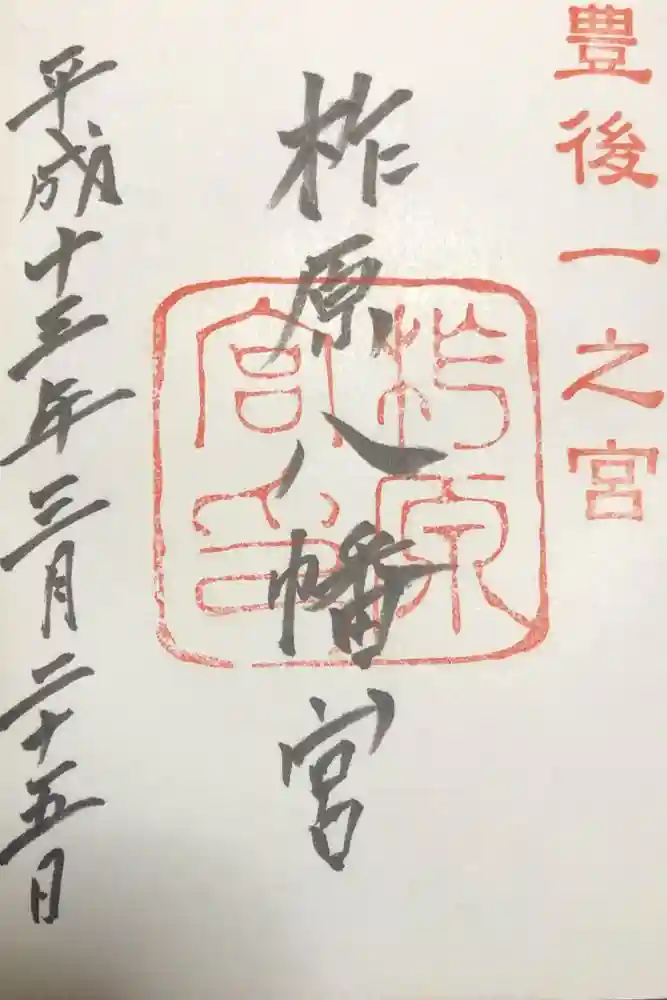 豊後一之宮
柞原八幡宮
柞原宮印
平成十三年三月二十五日